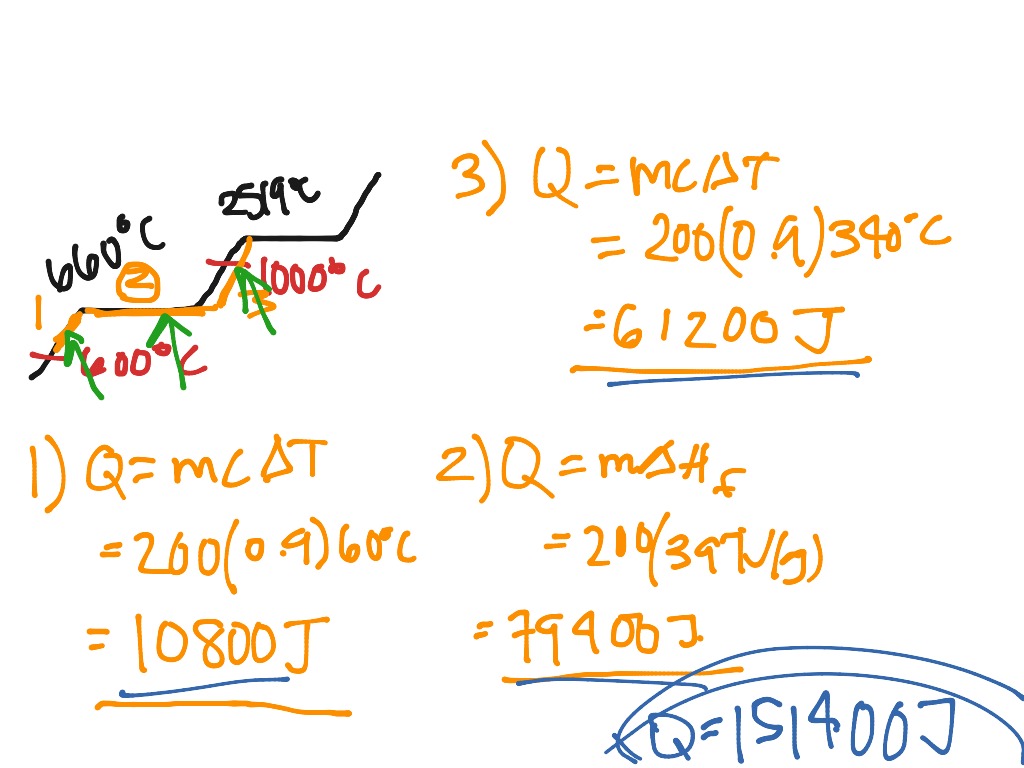 2519°C
660°C
②
1000°C
1
3
600°C
3) Q = mCΔT
= 200(0.9)340°C
= 61200 J
1) Q = mCΔT
= 200(0.9)60°C
= 10800 J
2) Q = mΔHf
= 200(397J/g)
= 79400 J
Q = 151400 J